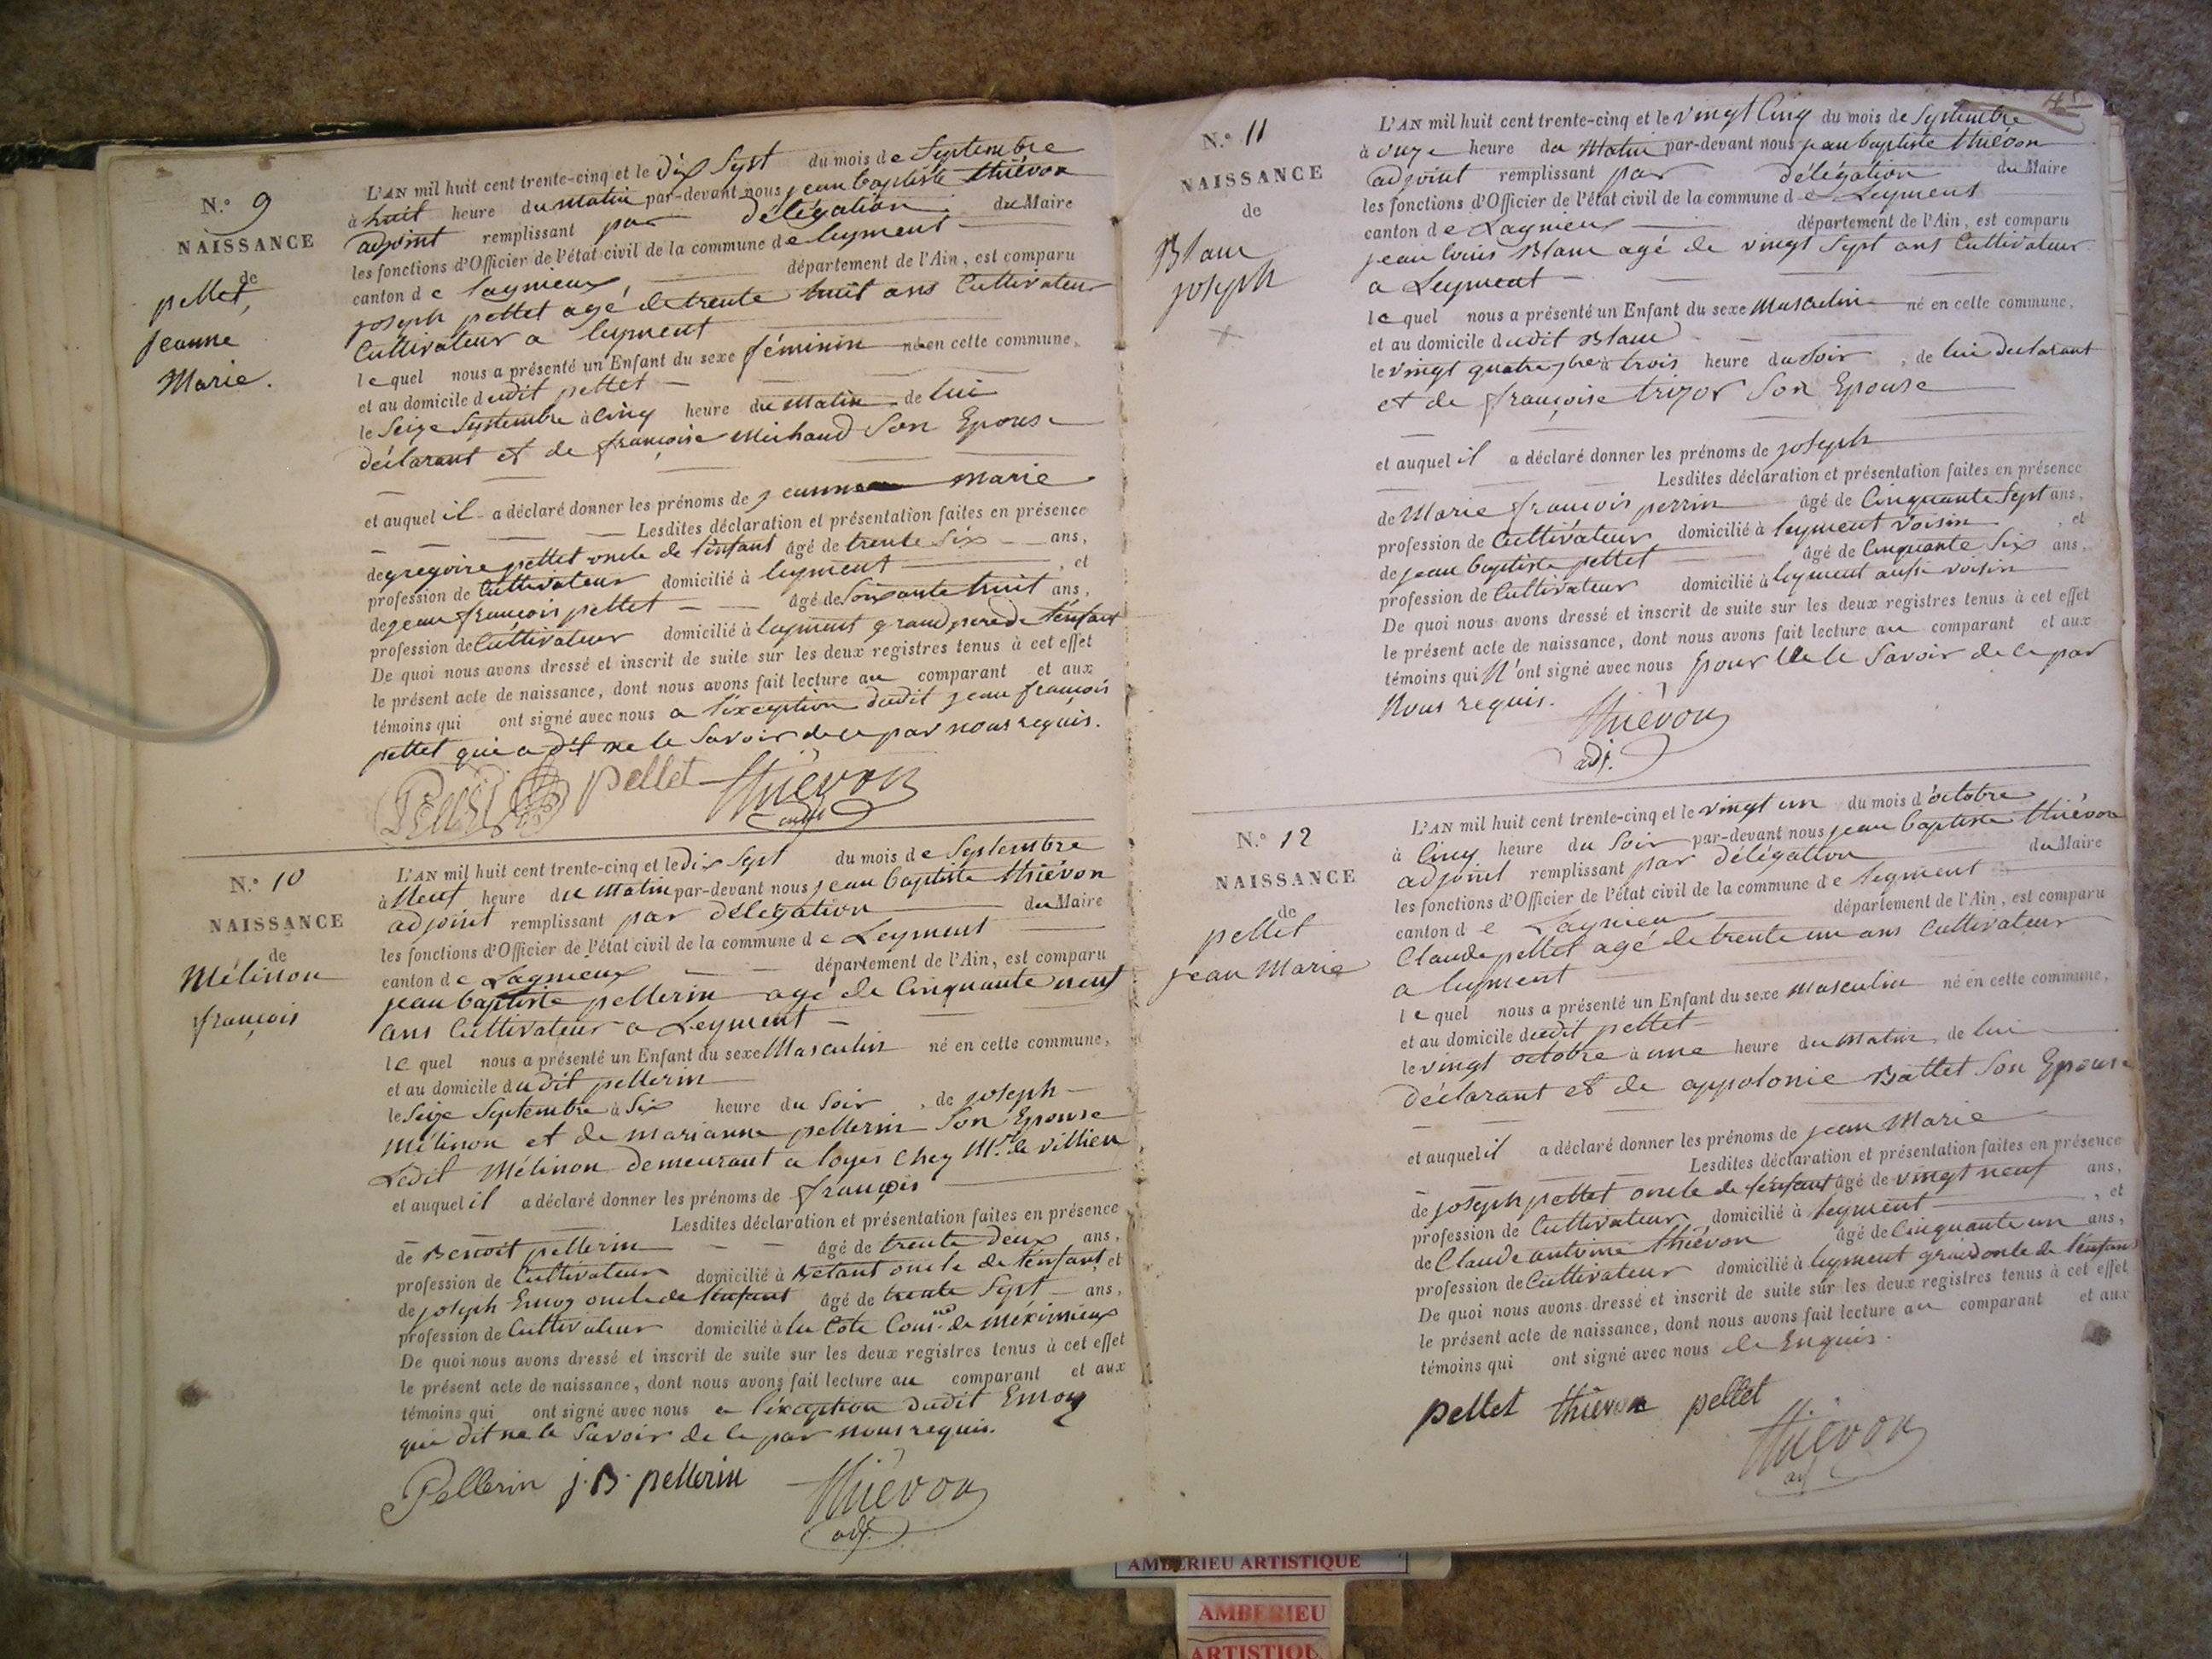 N.° 9
NAISSANCE
de
pellet,
jeanne
Marie.
L'AN mil huit cent trente-cinq et le dix Sept du mois de Septembre
à huit heure du matin par-devant nous jean baptiste thiévon
adjoint remplissant par délégation du Maire
les fonctions d'Officier de l'état civil de la commune de leyment
canton de lagnieux, département de l'Ain, est comparu
joseph pellet agé de trente huit ans Cultivateur
Cultivateur a leyment
lequel nous a présenté un Enfant du sexe féminin né en cette commune,
et au domicile dudit pellet
le Seize Septembre à Cinq heure du matin de lui
déclarant et de françoise Michaud Son Epouse
et auquel il a déclaré donner les prénoms de jeanne marie
Lesdites déclaration et présentation faites en présence
de gregoire pellet oncle de l'enfant âgé de trente Six ans,
profession de Cultivateur domicilié à leyment , et
de jean françois pellet âgé de Soixante huit ans,
profession de Cultivateur domicilié à leyment grand pere de l'enfant
De quoi nous avons dressé et inscrit de suite sur les deux registres tenus à cet effet
le présent acte de naissance, dont nous avons fait lecture au comparant et aux
témoins qui ont signé avec nous a l'exception dudit jean françois
pellet qui a dit ne le Savoir de ce par nous requis.
Pellet pellet thiévon
adj.
N.° 10
NAISSANCE
de
Mélinon
françois
L'AN mil huit cent trente-cinq et le dix Sept du mois de Septembre
à Neuf heure du Matin par-devant nous jean baptiste thiévon
adjoint remplissant par délégation du Maire
les fonctions d'Officier de l'état civil de la commune de Leyment
canton de Lagnieux département de l'Ain, est comparu
jean baptiste pellerin agé de Cinquante neuf
ans Cultivateur a Leyment
lequel nous a présenté un Enfant du sexe Masculin né en cette commune,
et au domicile dudit pellerin
le Seize Septembre à Six heure du Soir , de joseph
Mélinon et de marianne pellerin Son Epouse
Ledit Mélinon demeurant a loyes chez Mr. de villien
et auquel il a déclaré donner les prénoms de françois
Lesdites déclaration et présentation faites en présence
de Benoit pellerin âgé de trente deux ans,
profession de Cultivateur domicilié à Betant oncle de l'enfant, et
de joseph Emoy oncle de l'enfant âgé de trente Sept ans,
profession de Cultivateur domicilié à la Côte Comne. de Méximieux
De quoi nous avons dressé et inscrit de suite sur les deux registres tenus à cet effet
le présent acte de naissance, dont nous avons fait lecture au comparant et aux
témoins qui ont signé avec nous a l'éxception dudit Emoy
qui dit ne le Savoir de ce par nous requis.
Pellerin j. B. pellerin thiévon
adj.
45
N.° 11
NAISSANCE
de
Blanc
joseph
L'AN mil huit cent trente-cinq et le vingt Cinq du mois de Septembre
à onze heure du Matin par-devant nous jean baptiste thiévon
adjoint remplissant par délégation du Maire
les fonctions d'Officier de l'état civil de la commune de Leyment
canton de Lagnieux département de l'Ain, est comparu
jean louis Blanc agé de vingt Sept ans Cultivateur
a Leyment
lequel nous a présenté un Enfant du sexe Masculin né en cette commune,
et au domicile dudit Blanc
le vingt quatre 7bre à trois heure du Soir , de lui déclarant
et de françoise trizor Son Epouse
et auquel il a déclaré donner les prénoms de joseph
Lesdites déclaration et présentation faites en présence
de Marie françois perrin âgé de Cinquante Sept ans,
profession de Cultivateur domicilié à leyment voisin , et
de jean baptiste pellet âgé de Cinquante Six ans,
profession de Cultivateur domicilié à leyment aussi voisin
De quoi nous avons dressé et inscrit de suite sur les deux registres tenus à cet effet
le présent acte de naissance, dont nous avons fait lecture au comparant et aux
témoins qui N'ont signé avec nous pour ne le Savoir de ce par
Nous requis.
thiévon
adj.
N.° 12
NAISSANCE
de
pellet
jean Marie
L'AN mil huit cent trente-cinq et le vingt un du mois d'octobre
à Cinq heure du Soir par-devant nous jean baptiste thiévon
adjoint remplissant par délégation du Maire
les fonctions d'Officier de l'état civil de la commune de leyment
canton de Lagnieu département de l'Ain, est comparu
Claude pellet agé de trente un ans Cultivateur
a leyment
lequel nous a présenté un Enfant du sexe masculin né en cette commune,
et au domicile dudit pellet
le vingt octobre à une heure du matin, de lui
déclarant et de appolonie Battet Son Epouse
et auquel il a déclaré donner les prénoms de jean Marie
Lesdites déclaration et présentation faites en présence
de joseph pellet oncle de l'enfant âgé de vingt neuf ans,
profession de Cultivateur domicilié à leyment , et
de Claude antoine thiévon âgé de Cinquante un ans,
profession de Cultivateur domicilié à leyment grand oncle de l'enfant
De quoi nous avons dressé et inscrit de suite sur les deux registres tenus à cet effet
le présent acte de naissance, dont nous avons fait lecture au comparant et aux
témoins qui ont signé avec nous de Enquis.
pellet thievon pellet
thiévon
adj
AMBERIEU ARTISTIQUE
AMBERIEU
ARTISTIQUE